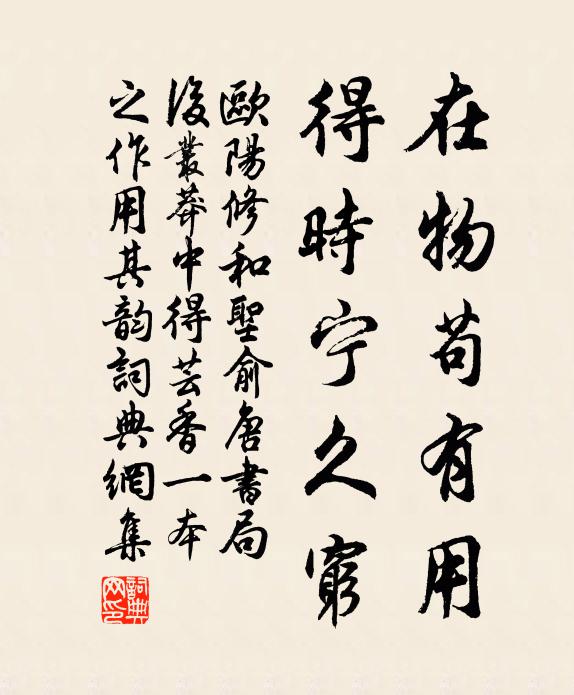 在物苟有用
得時宁久窮
歐陽修和聖俞唐書局
後叢莽中得芸香一本
之作用其韵詞典網集
詞典網印